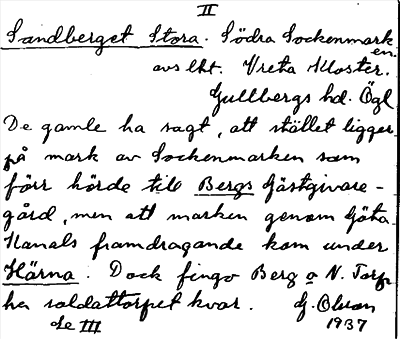 II
Sandberget Stora. Södra Sockenmark
en.
avs lht. Vreta Kloster.
Gullbergs hd. Ögl
De gamle ha sagt, att stället ligger
på mark av Sockenmarken som
förr hörde till Bergs Gästgivare-
gård, men att marken genom Göta
Kanals framdragande kom under
Kärna. Dock fingo Berg o N. Torp
ha soldattorpet kvar. G. Olsson
se III 1937